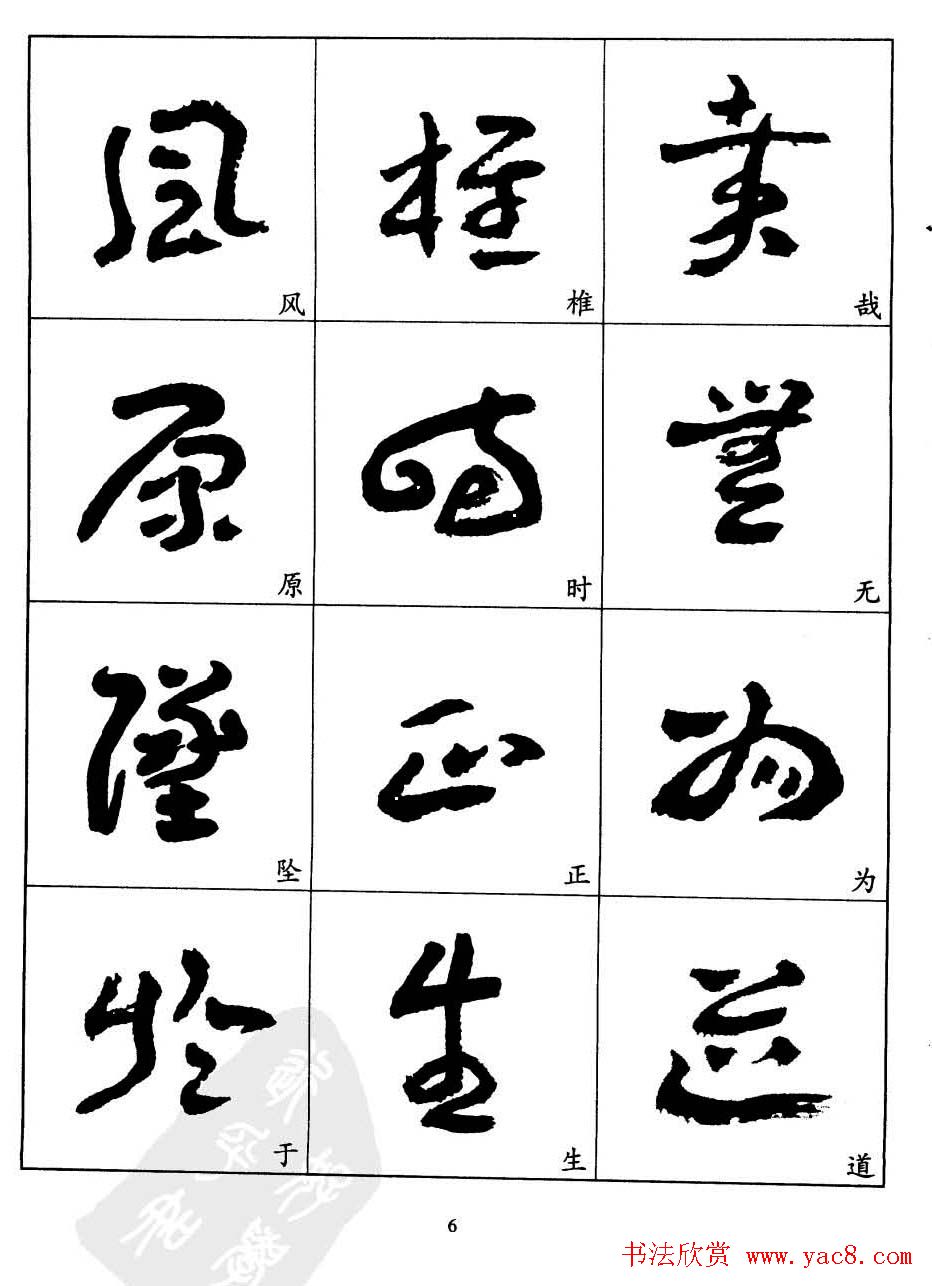 風 椎 哉
风 椎 哉
原 時 無
原 时 无
墜 正 為
坠 正 为
於 生 道
于 生 道
6
书法欣赏 www.yac8.com